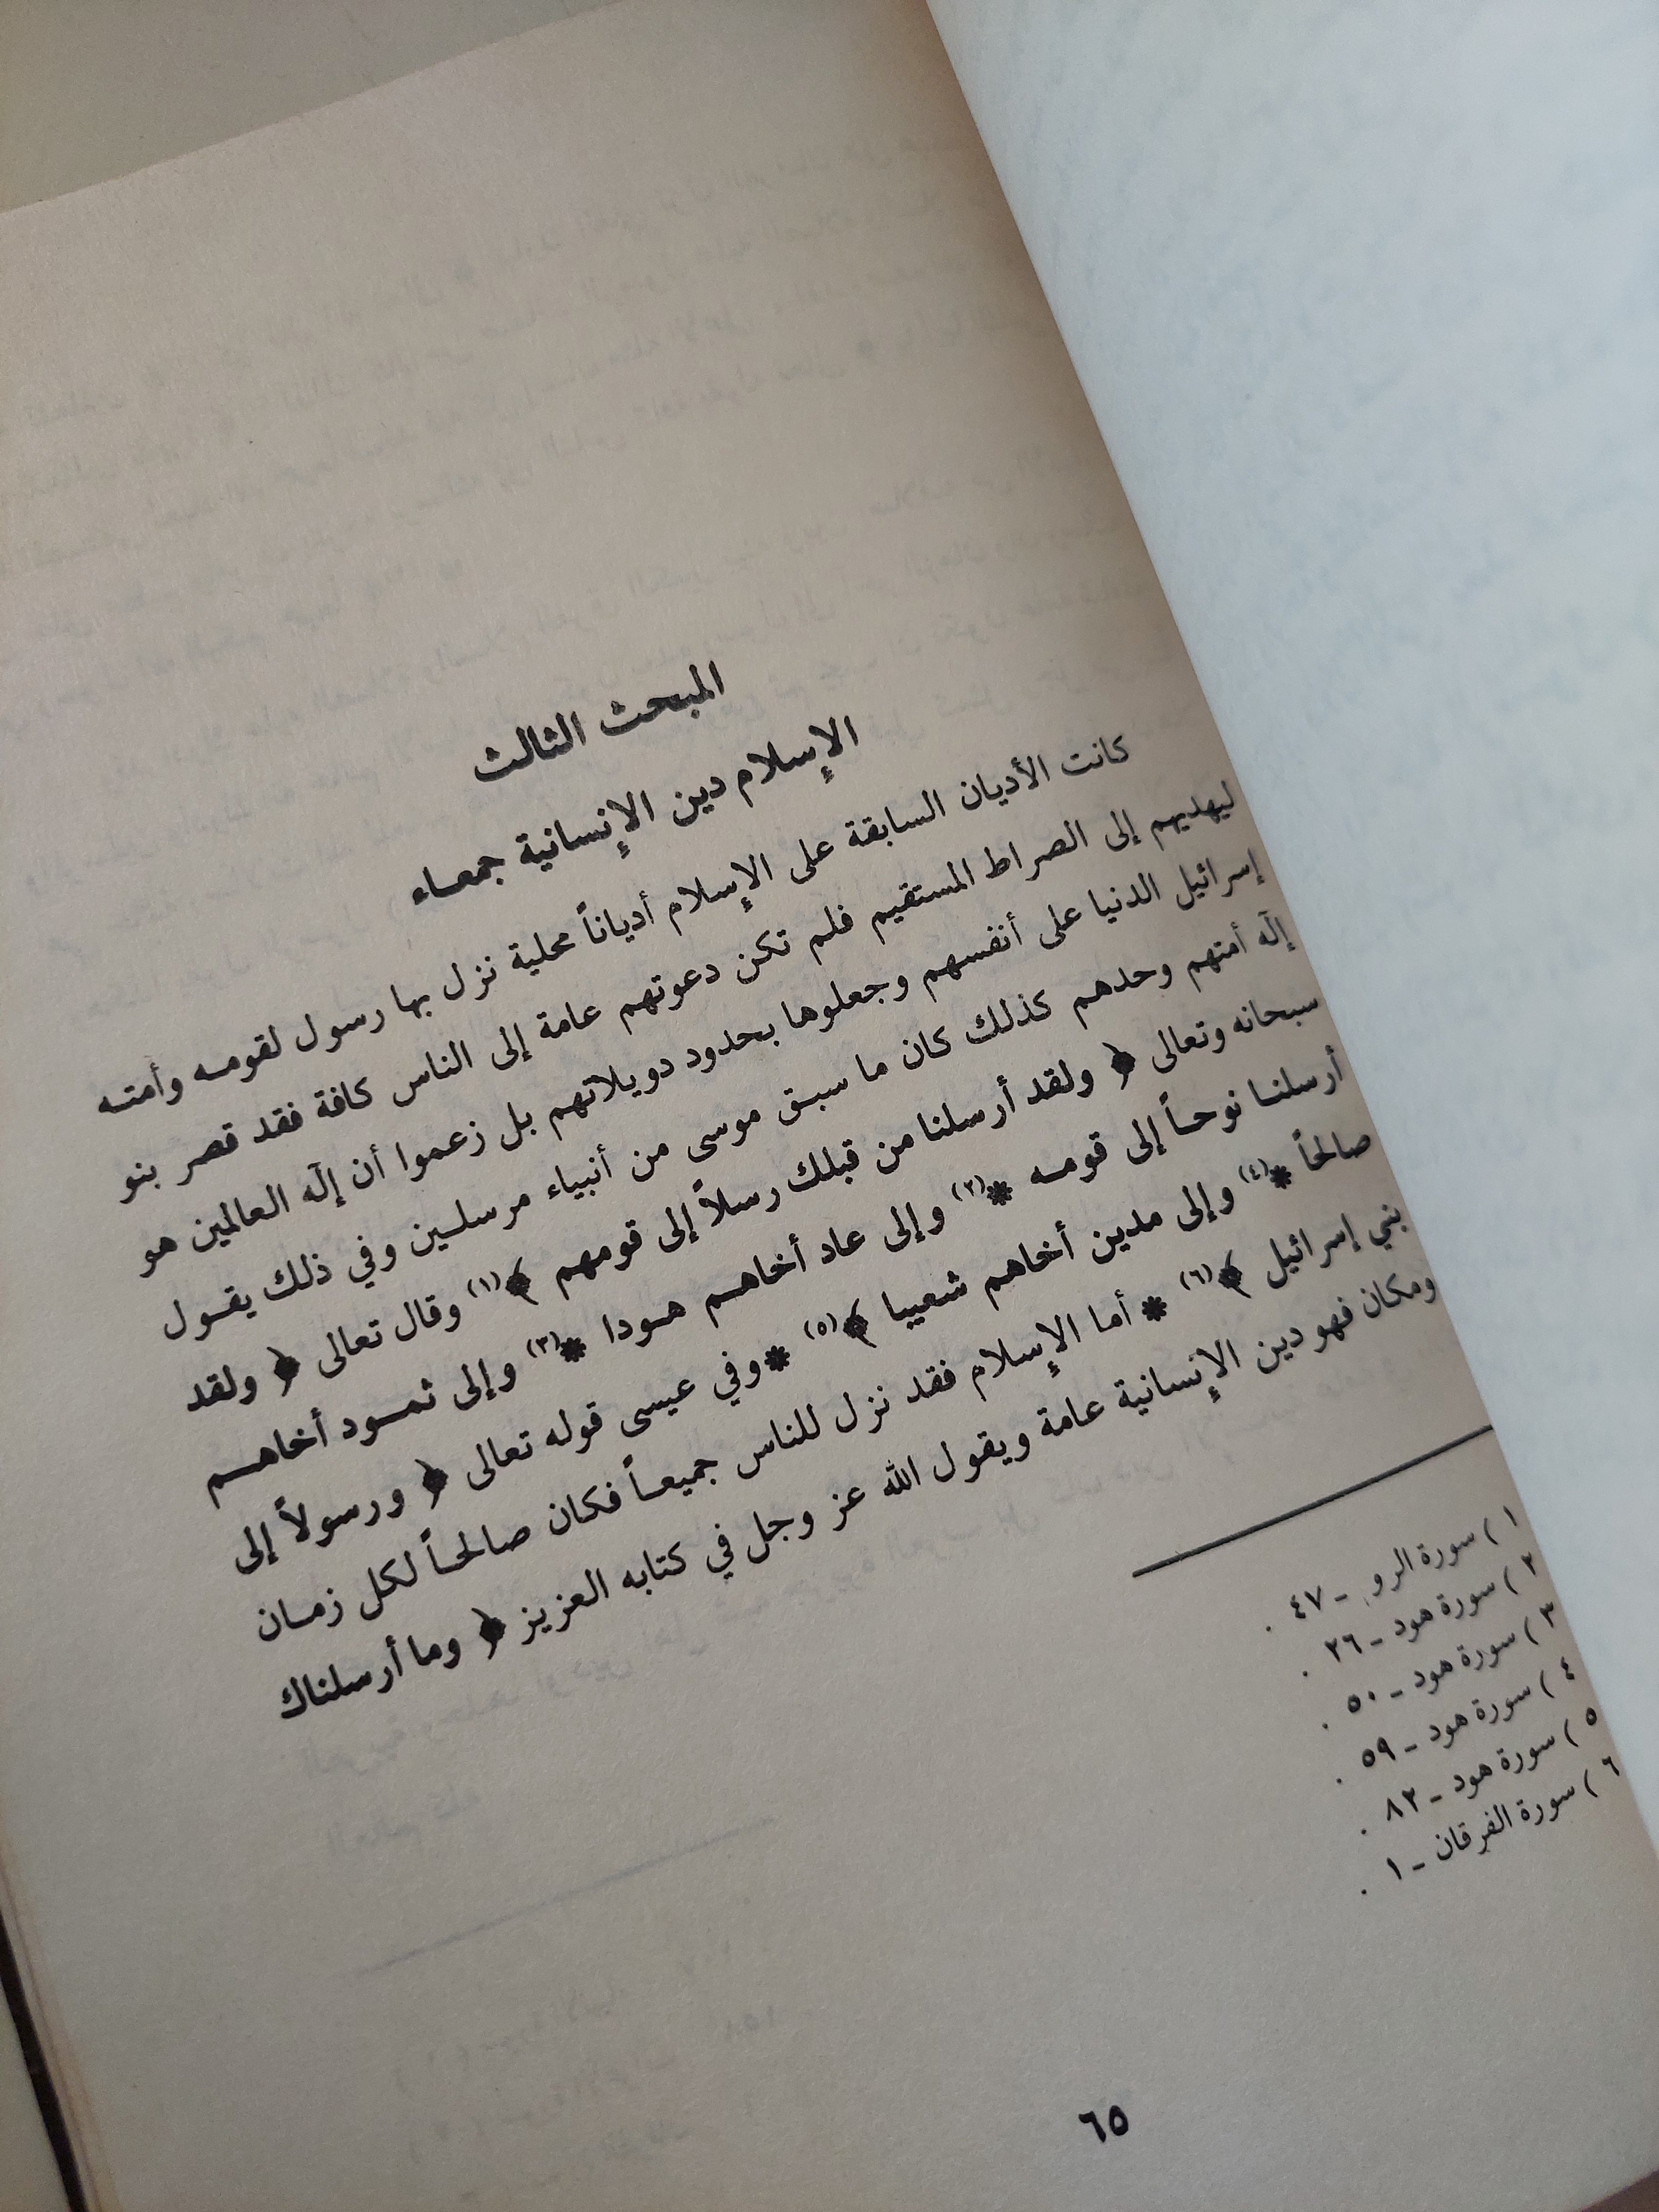 المبحث الثالث
الإسلام دين الإنسانية جمعاء
كانت الأديان السابقة على الإسلام أدياناً محلية نزل بها رسول لقومه وأمته
ليهديهم إلى الصراط المستقيم فلم تكن دعوتهم عامة إلى الناس كافة فقد قصر بنو
إسرائيل الدنيا على أنفسهم وجعلوها بحدود دويلاتهم بل زعموا أن إلٓه العالمين هو
إلٓه أمتهم وحدهم كذلك كان ما سبق موسى من أنبياء مرسلين وفي ذلك يقول
سبحانه وتعالى ﴿ ولقد أرسلنا من قبلك رسلاً إلى قومهم ﴾(١) وقال تعالى ﴿ ولقد
أرسلنا نوحاً إلى قومه *(٢) وإلى عاد أخاهم هودا *(٣) وإلى ثمود أخاهم
صالحاً *(٤) وإلى مدين أخاهم شعيبا ﴾(٥) * وفي عيسى قوله تعالى ﴿ ورسولاً إلى
بني إسرائيل ﴾(٦) * أما الإسلام فقد نزل للناس جميعاً فكان صالحاً لكل زمان
ومكان فهو دين الإنسانية عامة ويقول الله عز وجل في كتابه العزيز ﴿ وما أرسلناك
١ ) سورة الرو ـ ٤٧ .
٢ ) سورة هود ـ ٢٦ .
٣ ) سورة هود ـ ٥٠ .
٤ ) سورة هود ـ ٥٩ .
٥ ) سورة هود ـ ٨٢ .
٦ ) سورة الفرقان ـ ١ .
٦٥